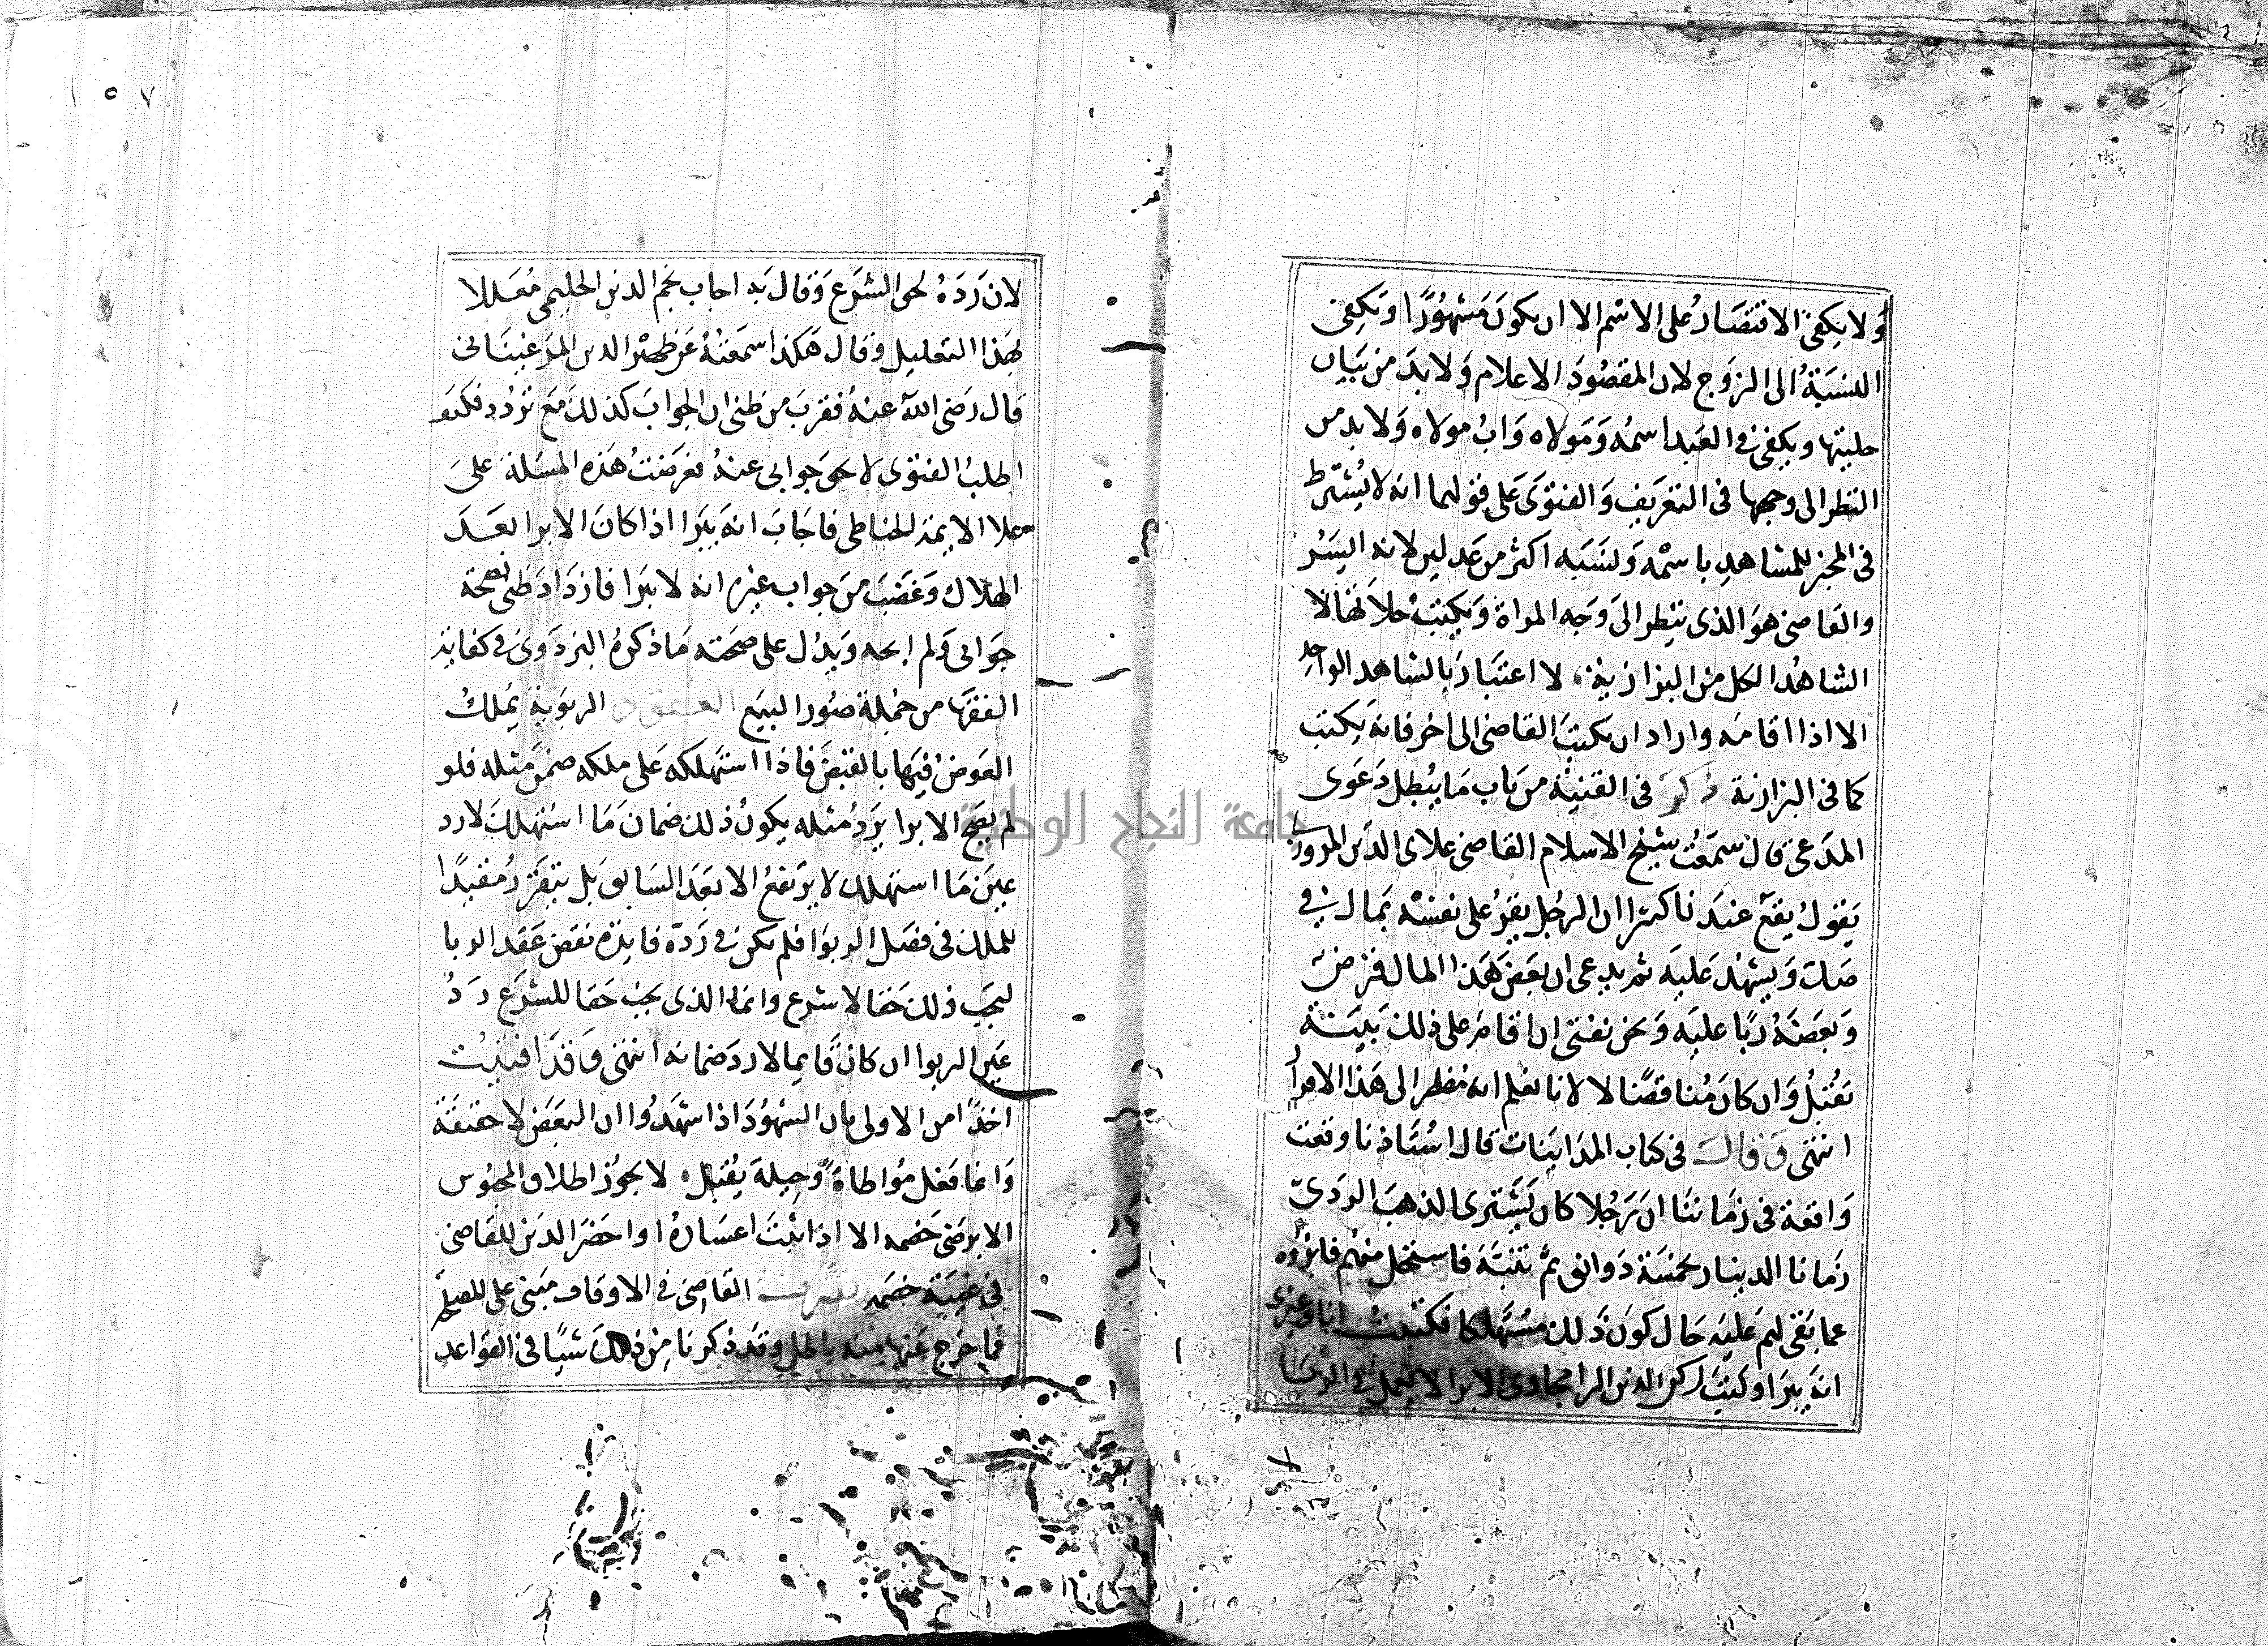 ولا يكفي الاقتصار على الاسم الا ان يكون مشهورا وتكفي
النسبة الى الزوج لان المقصود الاعلام ولا بد من بيان
حليتها ويكفي في العبد اسمه ومولاه واب مولاه ولا بد من
النظر الى وجهها في التعريف والفتوى على قولهما انه لا يشترط
في المخبر للمشاهد باسمه ونسبه اكثر من عدلين لانه ايسر
والقاضي هو الذي ينظر الى وجه المراة ويكتب حلاها لا
الشاهد الكل من البزازية لا اعتبار بالشاهد الواحد
الا اذا اقامه واراد ان يكتب القاضي الى اخر فانه يكتب
كما في البزازية ذكر في القنية من باب ما يبطل دعوى
المدعي قال سمعت شيخ الاسلام القاضي علاى الدين المروزي
يقول يقع عندنا كثيرا ان الرجل يقر على نفسه بمال في
صك ويشهد عليه ثم يدعي ان بعض هذا المال قرض
وبعضه ربا عليه ونحن نفتي ان اقام على ذلك بينة
تقبل وان كان مناقضا لانا نعلم انه مضطر الى هذا الاقرار
انتهى وقال في كتاب المداينات قال استاذنا وقعت
واقعة في زماننا ان رجلا كان يشترى الذهب الردي
زمانا الدينار بخمسة دوانق ثم تنبه فاستحل منهم فابروه
عما بقي لهم عليه حال كون ذلك مستهلكا فكتبت انا وغيري
انه يبرا وكتب ركن الدين الزانجاوي الابرا لا يعمل في الربا
لان رده لحق الشرع وقال به اجاب نجم الدين الحليمي معللا
بهذا التعليل وقال هكذا سمعته عن ظهير الدين المرغيناني
قال رضي الله عنه فقرب من ظني ان الجواب كذلك مع تردد فكنت
اطلب الفتوى لامحى جوابي عنه فعرضت هذه المسئلة على
علا الايمة الحناطي فاجاب انه يبرا اذا كان الابرا بعد
الهلاك وغضب من جواب غيره انه لا يبرا فازداد ظني بصحة
جوابي ولم امحه ويدل على صحته ما ذكره البزدوي في كفاية
الفقها من جملة صور البيع العقود الربوية يملك
العوض فيها بالقبض فاذا استهلكه على ملكه ضمن مثله فلو
لم يصح الابرا يرد مثله يكون ذلك ضمان ما استهلك لا رد
عين ما استهلك لا يرتفع الا بعد السابق بل يتقرر مفيدا
للملك في فصل الربوا فلم يكن في رده فايدة نقض عقد الربا
ليجب ذلك حقا لا شرع وانما الذي يجب حقا للشرع رد
عين الربوا ان كان قايما لا رد ضمانه انتهى وقد افتيت
اخذا من الاولى بان الشهود اذا شهدوا ان البعض لا حقيقة
وانما فعل مواطاة وحيلة يقبل لا يجوز اطلاق المحبوس
الا برضى خصمه الا اذا ثبت اعساره او احضر الدين للقاضي
في غيبة خصمه تصرف القاضي في الاوقاف مبني على المصلحة
فما خرج عنها منه باطل وقد ذكرنا من ذلك شيئا في القواعد
جامعة النجاح الوطنية